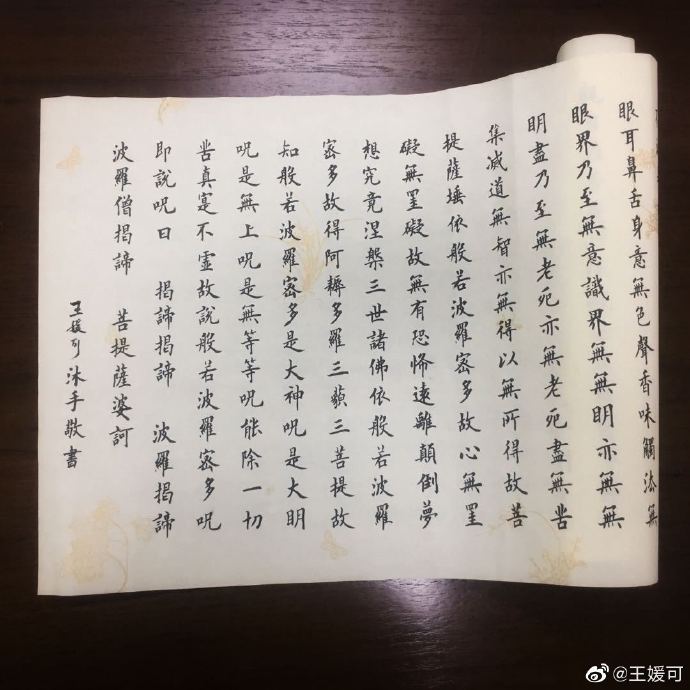 眼耳鼻舌身意無色聲香味觸法無
眼界乃至無意識界無無明亦無無
明盡乃至無老死亦無老死盡無苦
集滅道無智亦無得以無所得故菩
提薩埵依般若波羅密多故心無罣
礙無罣礙故無有恐怖遠離顛倒夢
想究竟涅槃三世諸佛依般若波羅
密多故得阿耨多羅三藐三菩提故
知般若波羅密多是大神呪是大明
呪是無上呪是無等等呪能除一切
苦真寔不虛故說般若波羅密多呪
即說呪曰 揭諦揭諦 波羅揭諦
波羅僧揭諦 菩提薩婆訶
王媛可沐手敬書
@王媛可